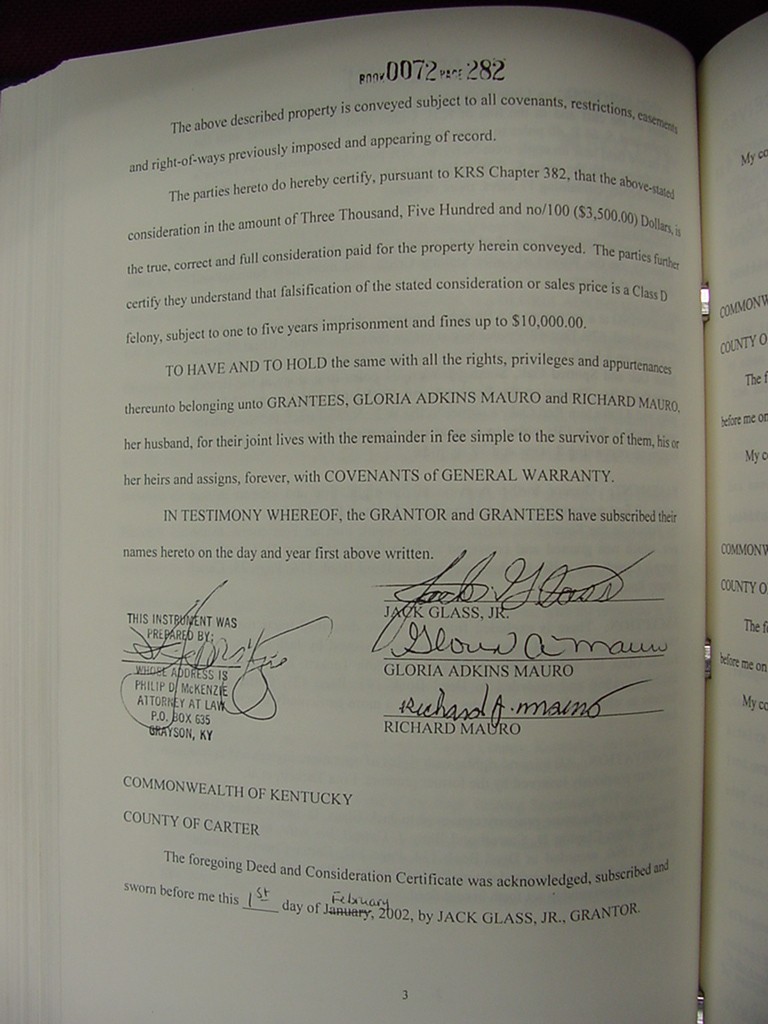 BOOK 0072 PAGE 282
The above described property is conveyed subject to all covenants, restrictions, easements
and right-of-ways previously imposed and appearing of record.
The parties hereto do hereby certify, pursuant to KRS Chapter 382, that the above-stated
consideration in the amount of Three Thousand, Five Hundred and no/100 ($3,500.00) Dollars, is
the true, correct and full consideration paid for the property herein conveyed. The parties further
certify they understand that falsification of the stated consideration or sales price is a Class D
felony, subject to one to five years imprisonment and fines up to $10,000.00.
TO HAVE AND TO HOLD the same with all the rights, privileges and appurtenances
thereunto belonging unto GRANTEES, GLORIA ADKINS MAURO and RICHARD MAURO,
her husband, for their joint lives with the remainder in fee simple to the survivor of them, his or
her heirs and assigns, forever, with COVENANTS of GENERAL WARRANTY.
IN TESTIMONY WHEREOF, the GRANTOR and GRANTEES have subscribed their
names hereto on the day and year first above written.
Jack Glass
JACK GLASS, JR.
Gloria A Mauro
GLORIA ADKINS MAURO
Richard J. Mauro
RICHARD MAURO
THIS INSTRUMENT WAS
PREPARED BY:
WHOSE ADDRESS IS
PHILIP D. McKENZIE
ATTORNEY AT LAW
P.O. BOX 635
GRAYSON, KY
COMMONWEALTH OF KENTUCKY
COUNTY OF CARTER
The foregoing Deed and Consideration Certificate was acknowledged, subscribed and
February
sworn before me this 1st day of January, 2002, by JACK GLASS, JR., GRANTOR.
3
My co
COMMONW
COUNTY O
The f
before me on
My c
COMMONW
COUNTY O
The f
before me on
My co